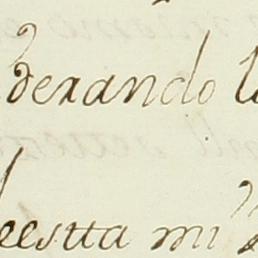 derando l
eestta mi